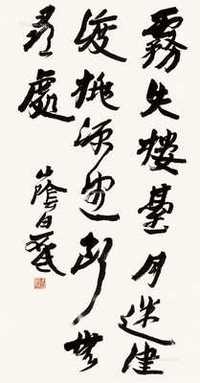 霧失樓臺月迷津
渡桃源望斷無
尋處
山陰白丁